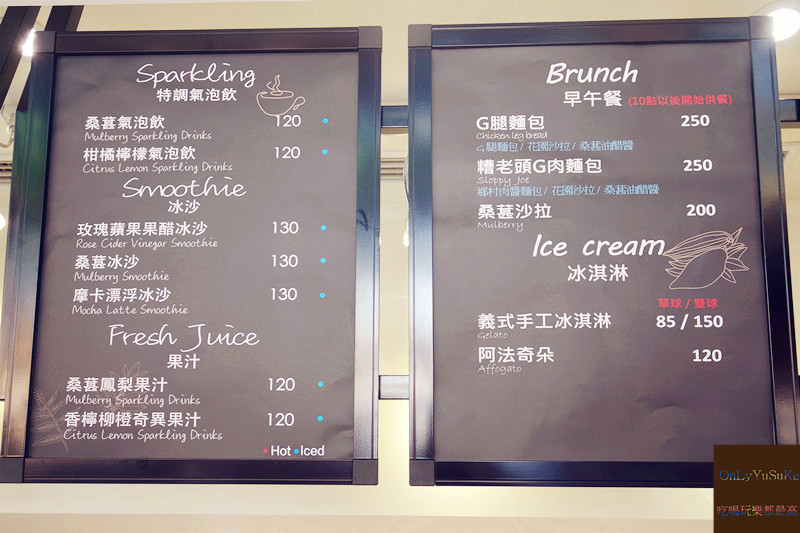 Sparkling
特調氣泡飲
桑葚氣泡飲 120
Mulberry Sparkling Drinks
柑橘檸檬氣泡飲 120
Citrus Lemon Sparkling Drinks
Smoothie
冰沙
玫瑰蘋果果醋冰沙 130
Rose Cider Vinegar Smoothie
桑葚冰沙 130
Mulberry Smoothie
摩卡漂浮冰沙 130
Mocha Latte Smoothie
Fresh Juice
果汁
桑葚鳳梨果汁 120
Mulberry Sparkling Drinks
香檸柳橙奇異果汁 120
Citrus Lemon Sparkling Drinks
Hot Iced
Brunch
早午餐 (10點以後開始供餐)
G腿麵包 250
Chicken leg bread
G腿麵包/ 花園沙拉/ 桑葚油醋醬
糟老頭G肉麵包 250
Sloppy Joe
鄉村肉醬麵包/ 花園沙拉/ 桑葚油醋醬
桑葚沙拉 200
Mulberry
Ice cream
冰淇淋
單球 / 雙球
義式手工冰淇淋 85 / 150
Gelato
阿法奇朵 120
Affogato
OnLyYuSuKe
吃喝玩樂都最高